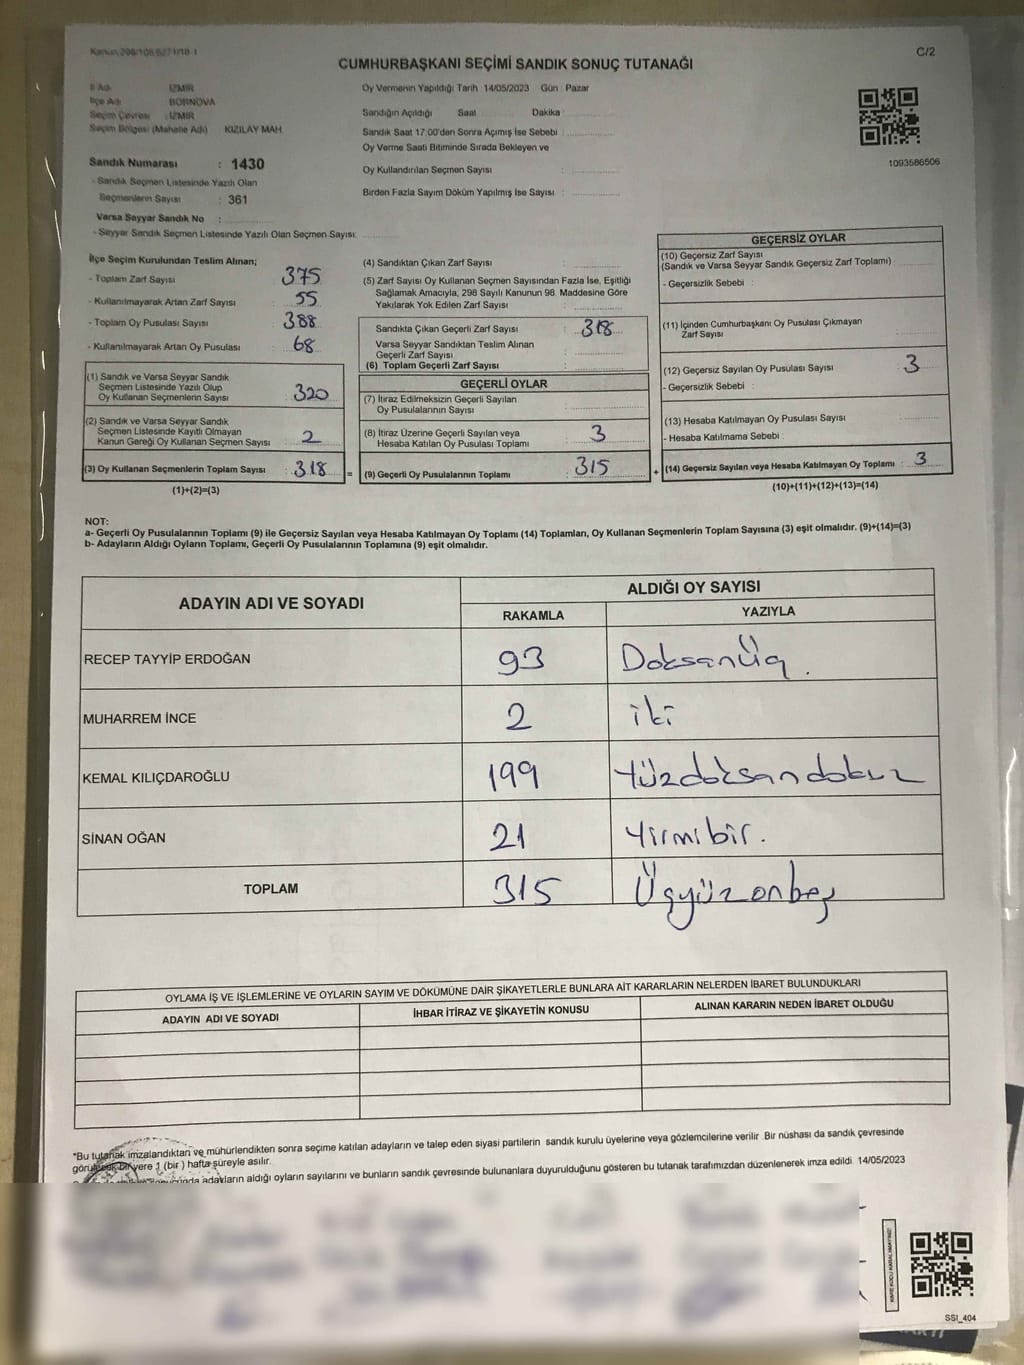 Kanun 298/105,6271/18-1
C/2
CUMHURBAŞKANI SEÇİMİ SANDIK SONUÇ TUTANAĞI
İl Adı : İZMİR
İlçe Adı : BORNOVA
Seçim Çevresi : İZMİR
Seçim Bölgesi (Mahalle Adı) KIZILAY MAH.
Sandık Numarası : 1430
- Sandık Seçmen Listesinde Yazılı Olan
Seçmenlerin Sayısı : 361
Varsa Seyyar Sandık No :
- Seyyar Sandık Seçmen Listesinde Yazılı Olan Seçmen Sayısı:
Oy Vermenin Yapıldığı Tarih 14/05/2023 Gün : Pazar
Sandığın Açıldığı Saat Dakika
Sandık Saat 17:00'den Sonra Açımış İse Sebebi :
Oy Verme Saati Bitiminde Sırada Bekleyen ve
Oy Kullandırılan Seçmen Sayısı :
Birden Fazla Sayım Döküm Yapılmış İse Sayısı :
1093586506
İlçe Seçim Kurulundan Teslim Alınan;
- Toplam Zarf Sayısı : 375
- Kullanılmayarak Artan Zarf Sayısı : 55
- Toplam Oy Pusulası Sayısı : 388
- Kullanılmayarak Artan Oy Pusulası : 68
(1) Sandık ve Varsa Seyyar Sandık
Seçmen Listesinde Yazılı Olup
Oy Kullanan Seçmenlerin Sayısı : 320
(2) Sandık ve Varsa Seyyar Sandık
Seçmen Listesinde Kayıtlı Olmayan
Kanun Gereği Oy Kullanan Seçmen Sayısı : 2
(3) Oy Kullanan Seçmenlerin Toplam Sayısı : 318
(1)+(2)=(3)
(4) Sandıktan Çıkan Zarf Sayısı :
(5) Zarf Sayısı Oy Kullanan Seçmen Sayısından Fazla İse, Eşitliği
Sağlamak Amacıyla, 298 Sayılı Kanunun 98. Maddesine Göre
Yakılarak Yok Edilen Zarf Sayısı :
Sandıkta Çıkan Geçerli Zarf Sayısı : 318
Varsa Seyyar Sandıktan Teslim Alınan
Geçerli Zarf Sayısı :
(6) Toplam Geçerli Zarf Sayısı :
GEÇERLİ OYLAR
(7) İtiraz Edilmeksizin Geçerli Sayılan
Oy Pusulalarının Sayısı :
(8) İtiraz Üzerine Geçerli Sayılan veya
Hesaba Katılan Oy Pusulası Toplamı : 3
= (9) Geçerli Oy Pusulalarının Toplamı : 315
GEÇERSİZ OYLAR
(10) Geçersiz Zarf Sayısı
(Sandık ve Varsa Seyyar Sandık Geçersiz Zarf Toplamı)
- Geçersizlik Sebebi :
(11) İçinden Cumhurbaşkanı Oy Pusulası Çıkmayan
Zarf Sayısı :
(12) Geçersiz Sayılan Oy Pusulası Sayısı : 3
- Geçersizlik Sebebi :
(13) Hesaba Katılmayan Oy Pusulası Sayısı :
- Hesaba Katılmama Sebebi :
+ (14) Geçersiz Sayılan veya Hesaba Katılmayan Oy Toplamı : 3
(10)+(11)+(12)+(13)=(14)
NOT:
a- Geçerli Oy Pusulalarının Toplamı (9) ile Geçersiz Sayılan veya Hesaba Katılmayan Oy Toplamı (14) Toplamları, Oy Kullanan Seçmenlerin Toplam Sayısına (3) eşit olmalıdır. (9)+(14)=(3)
b- Adayların Aldığı Oyların Toplamı, Geçerli Oy Pusulalarının Toplamına (9) eşit olmalıdır.
ADAYIN ADI VE SOYADI
ALDIĞI OY SAYISI
RAKAMLA YAZIYLA
RECEP TAYYİP ERDOĞAN 93 Doksanüç.
MUHARREM İNCE 2 iki
KEMAL KILIÇDAROĞLU 199 Yüzdoksandokuz
SİNAN OĞAN 21 Yirmibir.
TOPLAM 315 Üçyüzonbeş
OYLAMA İŞ VE İŞLEMLERİNE VE OYLARIN SAYIM VE DÖKÜMÜNE DAİR ŞİKAYETLERLE BUNLARA AİT KARARLARIN NELERDEN İBARET BULUNDUKLARI
ADAYIN ADI VE SOYADI İHBAR İTİRAZ VE ŞİKAYETİN KONUSU ALINAN KARARIN NEDEN İBARET OLDUĞU
*Bu tutanak imzalandıktan ve mühürlendikten sonra seçime katılan adayların ve talep eden siyasi partilerin sandık kurulu üyelerine veya gözlemcilerine verilir. Bir nüshası da sandık çevresinde
görülecek bir yere 1 (bir ) hafta süreyle asılır.
adayların aldığı oyların sayılarını ve bunların sandık çevresinde bulunanlara duyurulduğunu gösteren bu tutanak tarafımızdan düzenlenerek imza edildi. 14/05/2023
SSI_404